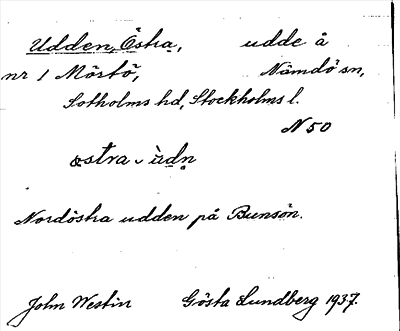 Udden, Östra, udde å
nr 1 Mörtö, Nämdö sn,
Sotholms hd, Stockholms l.
N 50
östra - ùdṇ
Nordöstra udden på Bunsön.
John Westin Gösta Lundberg 1937.